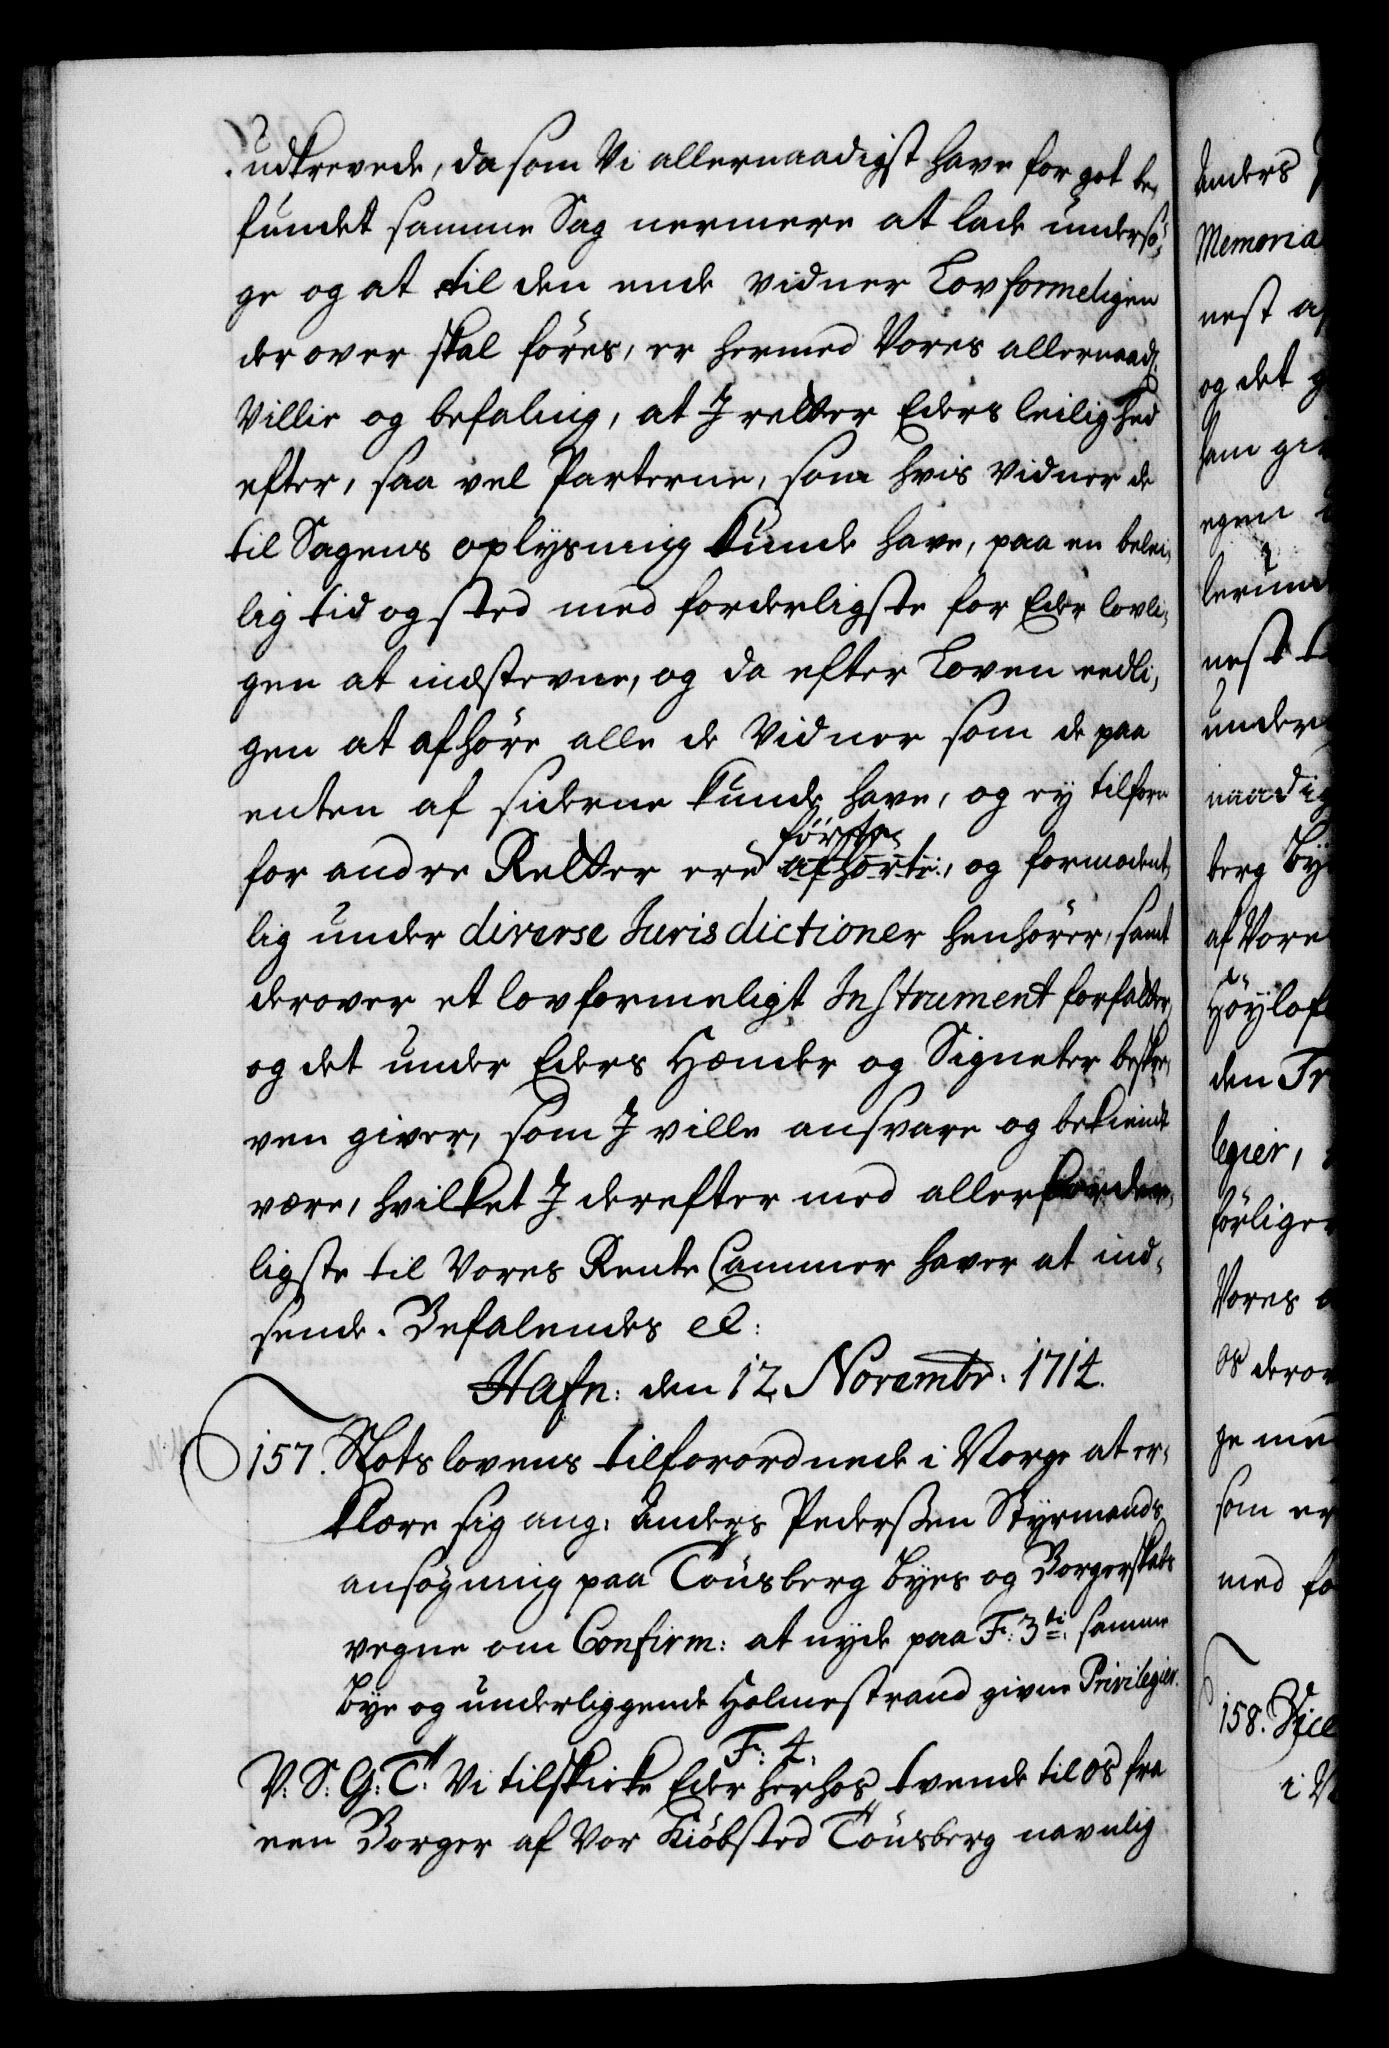 udkrevede, da som Vi allernaadigst have for got be,
fundet samme Sag nermere at lade undersø,
ge og at til den ende vidner Lovformeligen
derover skal føres, er hermed Vores allernaad:
Villie og befaling, at I retter Eders leilighed
efter, saa vel Parterne, som hvis vidner de
til Sagens oplysning kunde have, paa en belei,
lig tid og sted med forderligste for Eder lovli,
gen at indstevne, og da efter Loven eedli,
gen at afhøre alle de Vidner som de paa
enten af siderne kunde have, og ey tilforn
for andre Retter ere førte afhørte, og formodent,
lig under diverse Jurisdictioner henhører, samt
derover et lovformeligt Instrument forfatter,
og det under Eders Hænder og Signeter beskre,
ven giver, som I ville ansvare og bekiendt
være, hvilket I derefter med allerforder,
ligste til Vores Rente Cammer haver at ind,
sende. Befalendes ec:
Hafn: den 12 Novembr: 1714.
157. Slotslovens tilforordnede i Norge at er,
klære sig ang: Anders Pederssen Styrmands
ansøgning paa Tønsberg Byes og Borgerskabs
vegne om Confirm: at nyde paa F: 3ti: samme
Bye og underliggende Holmestrand givne Privilegier.
F: 4:
V: S: G: T: Vi tilskicke Eder herhos tvende til os fra
een Borger af Vor Kiøbsted Tønsberg navnlig
Anders
Memoria
nest a
og det g
ham gi
egen
nest
under
naadig
berg By
af Vore
Høylof
den Fr
legier,
førliger
Vores
os derov
ge me
som er
med fo
158. Vice
i N